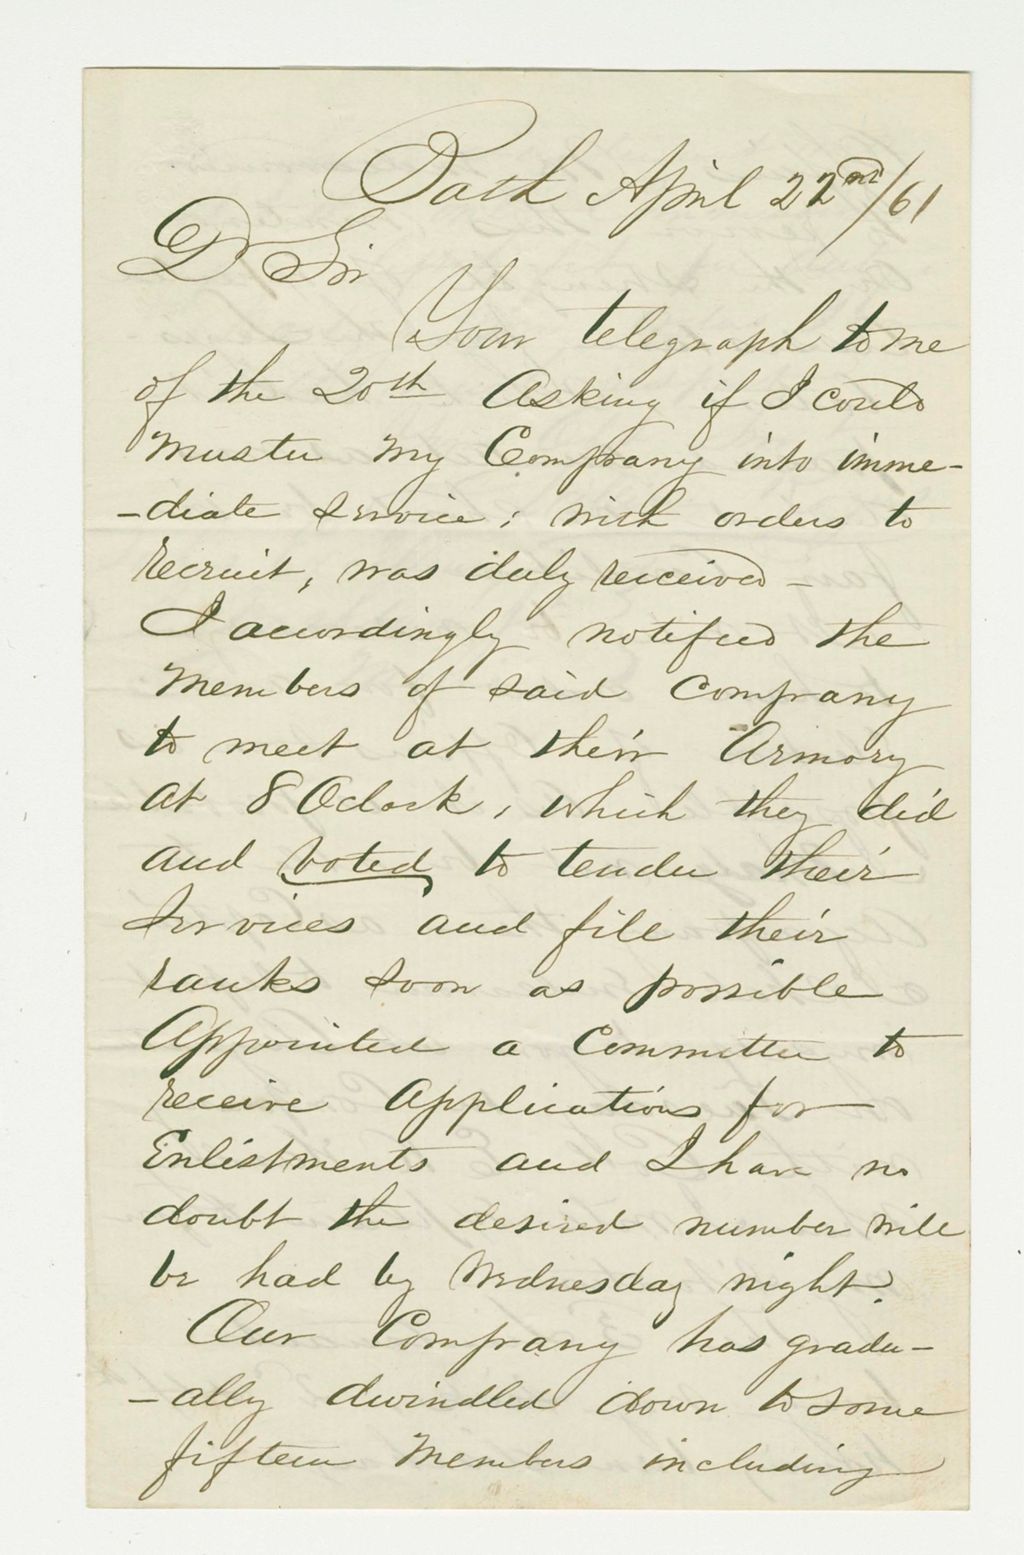 Bath April 22nd/61
D Sir
Your telegraph to me
of the 20th Asking if I could
Muster My Company into imme-
-diate service; with orders to
recruit, was duly received -
I accordingly notified the
Members of said Company
to meet at their Armory
at 8 Oclock, which they did
and voted to tender their
Services and file their
ranks soon as possible
Appointed a Committee to
receive Applications for
Enlistments and I have no
doubt the desired number will
be had by Wednesday night.
Our Company has gradu-
-ally dwindled down to some
fifteen Members including